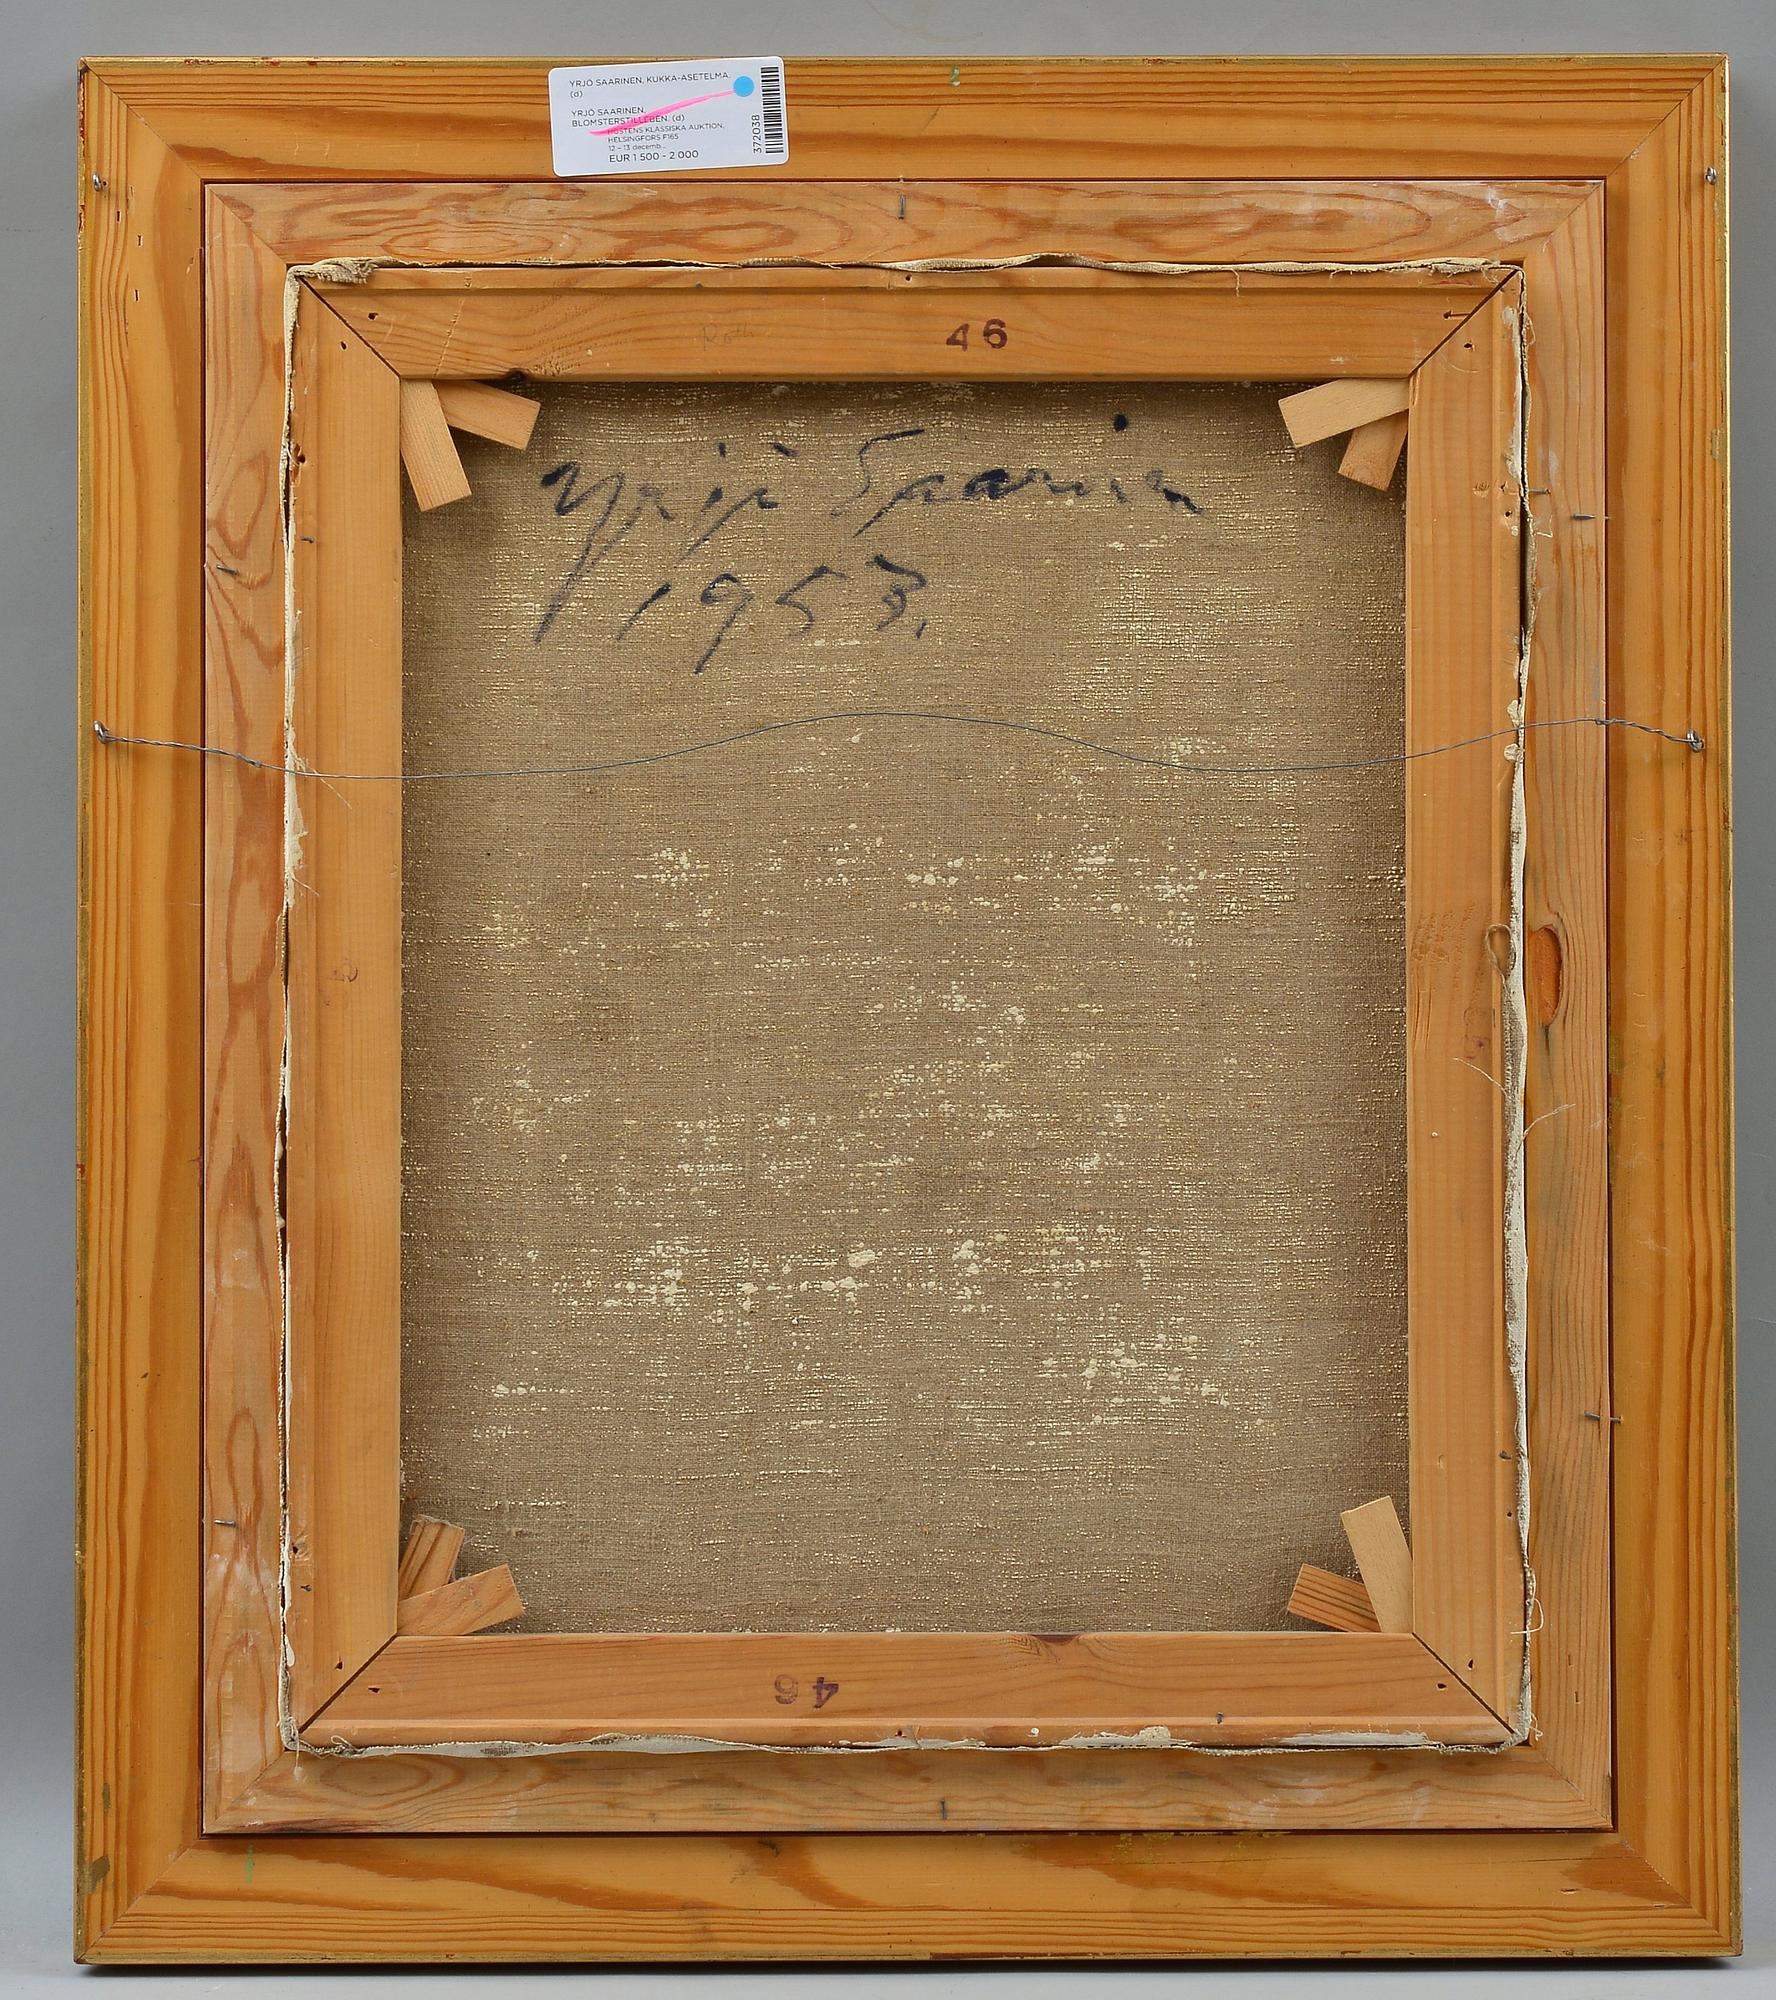 YRJÖ SAARINEN, KUKKA-ASETELMA.
(d)
YRJÖ SAARINEN,
BLOMSTERSTILLEBEN. (d)
HÖSTENS KLASSISKA AUKTION,
HELSINGFORS F165
12 – 13 decemb...
EUR 1 500 - 2 000
372038
46
Yrjö Saarinen
1953.
46